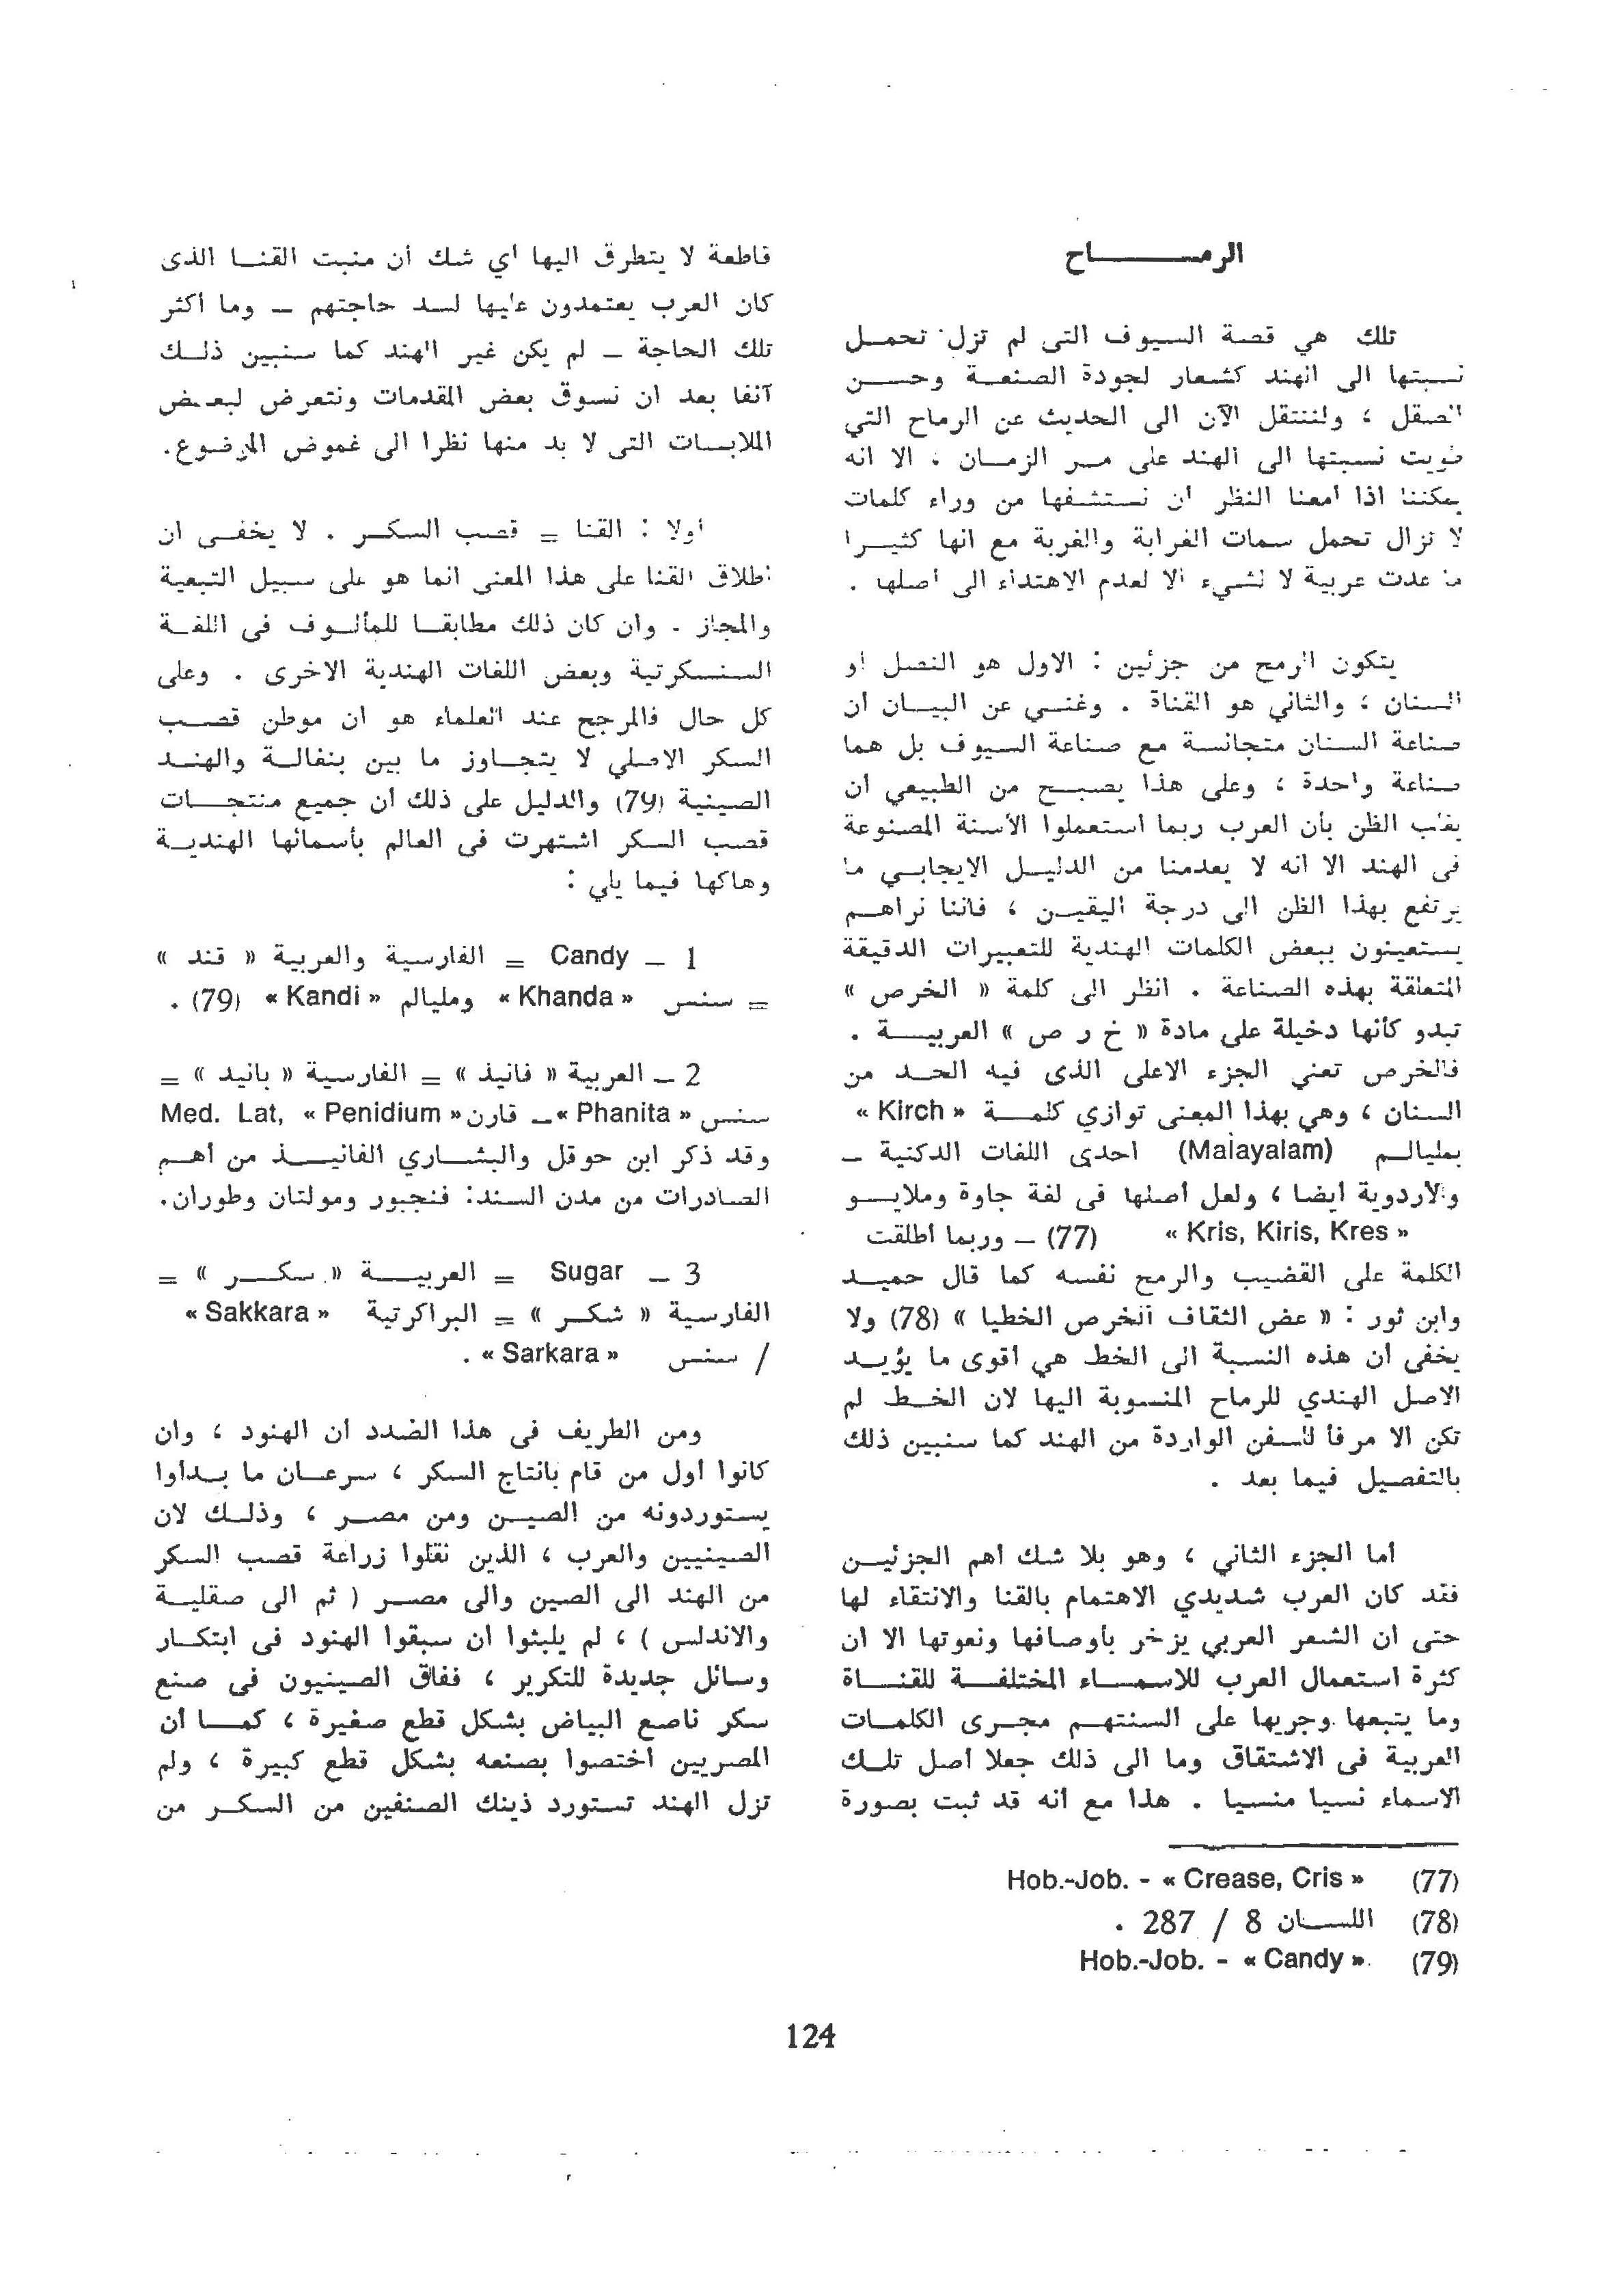 الرمـــــــاح
تلك هي قصة السيوف التى لم تزل تحمـل
نسبتها الى الهند كشعار لجودة الصنعـة وحسـن
الصقل ، ولننتقل الآن الى الحديث عن الرماح التي
طويت نسبتها الى الهند على مـر الزمـان . الا انه
يمكننا اذا امعنا النظر ان نستشفها من وراء كلمات
لا تزال تحمل سمات الغرابة والغربة مع انها كثيـرا
ما عدت عربية لا لشيء الا لعدم الاهتداء الى اصلها .
يتكون الرمح من جزئين : الاول هو النصل او
السنان ، والثاني هو القناة . وغنـي عن البيـان ان
صناعة السنان متجانسة مع صناعة السيوف بل هما
صناعة واحدة ، وعلى هذا يصبـح من الطبيعي ان
يغلب الظن بأن العرب ربما استعملوا الأسنة المصنوعة
فى الهند الا انه لا يعدمنا من الدليـل الايجابـي ما
يرتفع بهذا الظن الى درجة اليقيـن ، فاننا نراهـم
يستعينون ببعض الكلمات الهندية للتعبيرات الدقيقة
المتعلقة بهذه الصناعة . انظر الى كلمة « الخرص »
تبدو كأنها دخيلة على مادة « خ ر ص » العربيـــة .
فالخرص تعني الجزء الاعلى الذى فيه الحـد من
السنان ، وهي بهذا المعنى توازي كلمـــة « Kirch »
بمليالـم (Malayalam) احدى اللغات الدكنية ــ
والأردوية أيضا ، ولعل أصلها فى لغة جاوة وملايـو
« Kris, Kiris, Kres » (77) ــ وربما اطلقت
الكلمة على القضيب والرمح نفسه كما قال حميـد
وابن ثور : « عض الثقاف الخرص الخطيا » (78) ولا
يخفى ان هذه النسبة الى الخط هي أقوى ما يؤيـد
الاصل الهندي للرماح المنسوبة اليها لان الخـط لم
تكن الا مرفأ للسفن الواردة من الهند كما سنبين ذلك
بالتفصيل فيما بعد .
أما الجزء الثاني ، وهو بلا شك أهم الجزئيـن
فقد كان العرب شديدي الاهتمام بالقنا والانتقاء لها
حتى ان الشعر العربي يزخر بأوصافها ونعوتها الا ان
كثرة استعمال العرب للاسمـاء المختلفـــة للقنـاة
وما يتبعها وجريها على السنتهـم مجـرى الكلمات
العربية فى الاشتقاق وما الى ذلك جعلا أصل تلـك
الاسماء نسيا منسيا . هذا مع أنه قد ثبت بصورة
قاطعة لا يتطرق اليها أي شك أن منبت القنـا الذى
كان العرب يعتمدون عليها لسد حاجتهم ــ وما أكثر
تلك الحاجة ــ لم يكن غير الهند كما سنبين ذلـك
آنفا بعد ان نسوق بعض المقدمات ونتعرض لبعـض
الملابسات التى لا بد منها نظرا الى غموض الموضـوع.
أولا : القنا = قصب السكـر . لا يخفـى ان
اطلاق القنا على هذا المعنى انما هو على سبيل التبعية
والمجاز . وان كان ذلك مطابقـا للمألـوف فى اللغـة
السنسكرتية وبعض اللغات الهندية الاخرى . وعلى
كل حال فالمرجح عند العلماء هو ان موطن قصـب
السكر الاصلي لا يتجـاوز ما بين بنغالـة والهنـد
الصينية (79) والدليل على ذلك أن جميع منتجـات
قصب السكر اشتهرت فى العالم بأسمائها الهنديـة
وهاكها فيما يلي :
1 ــ Candy = الفارسية والعربية « قند »
= سنس « Khanda » ومليالم « Kandi » (79) .
2 ــ العربية « فانيذ » = الفارسية « بانيد » =
سنس « Phanita » ــ قارن « Penidium » Med. Lat,
وقد ذكر ابن حوقل والبشـاري الفانيـــذ من أهـم
الصادرات من مدن السند: فنجبور ومولتان وطوران.
3 ــ Sugar = العربيـــة « سكـر » =
الفارسية « شكـر » = البراكرتية « Sakkara »
/ سنس « Sarkara » .
ومن الطريف فى هذا الصدد ان الهنود ، وان
كانوا أول من قام بانتاج السكر ، سرعـان ما بـدأوا
يستوردونه من الصيـن ومن مصـر ، وذلـك لان
الصينيين والعرب ، الذين نقلوا زراعة قصب السكر
من الهند الى الصين والى مصـر ( ثم الى صقليـة
والاندلس ) ، لم يلبثوا ان سبقوا الهنود فى ابتكـار
وسائل جديدة للتكرير ، ففاق الصينيون فى صنع
سكر ناصع البياض بشكل قطع صغيرة ، كمـا أن
المصريين اختصوا بصنعه بشكل قطع كبيرة ، ولم
تزل الهند تستورد ذينك الصنفين من السكـر من
(77) Hob.-Job. - « Crease, Cris »
(78) اللسـان 8 / 287 .
(79) Hob.-Job. - « Candy ».
124